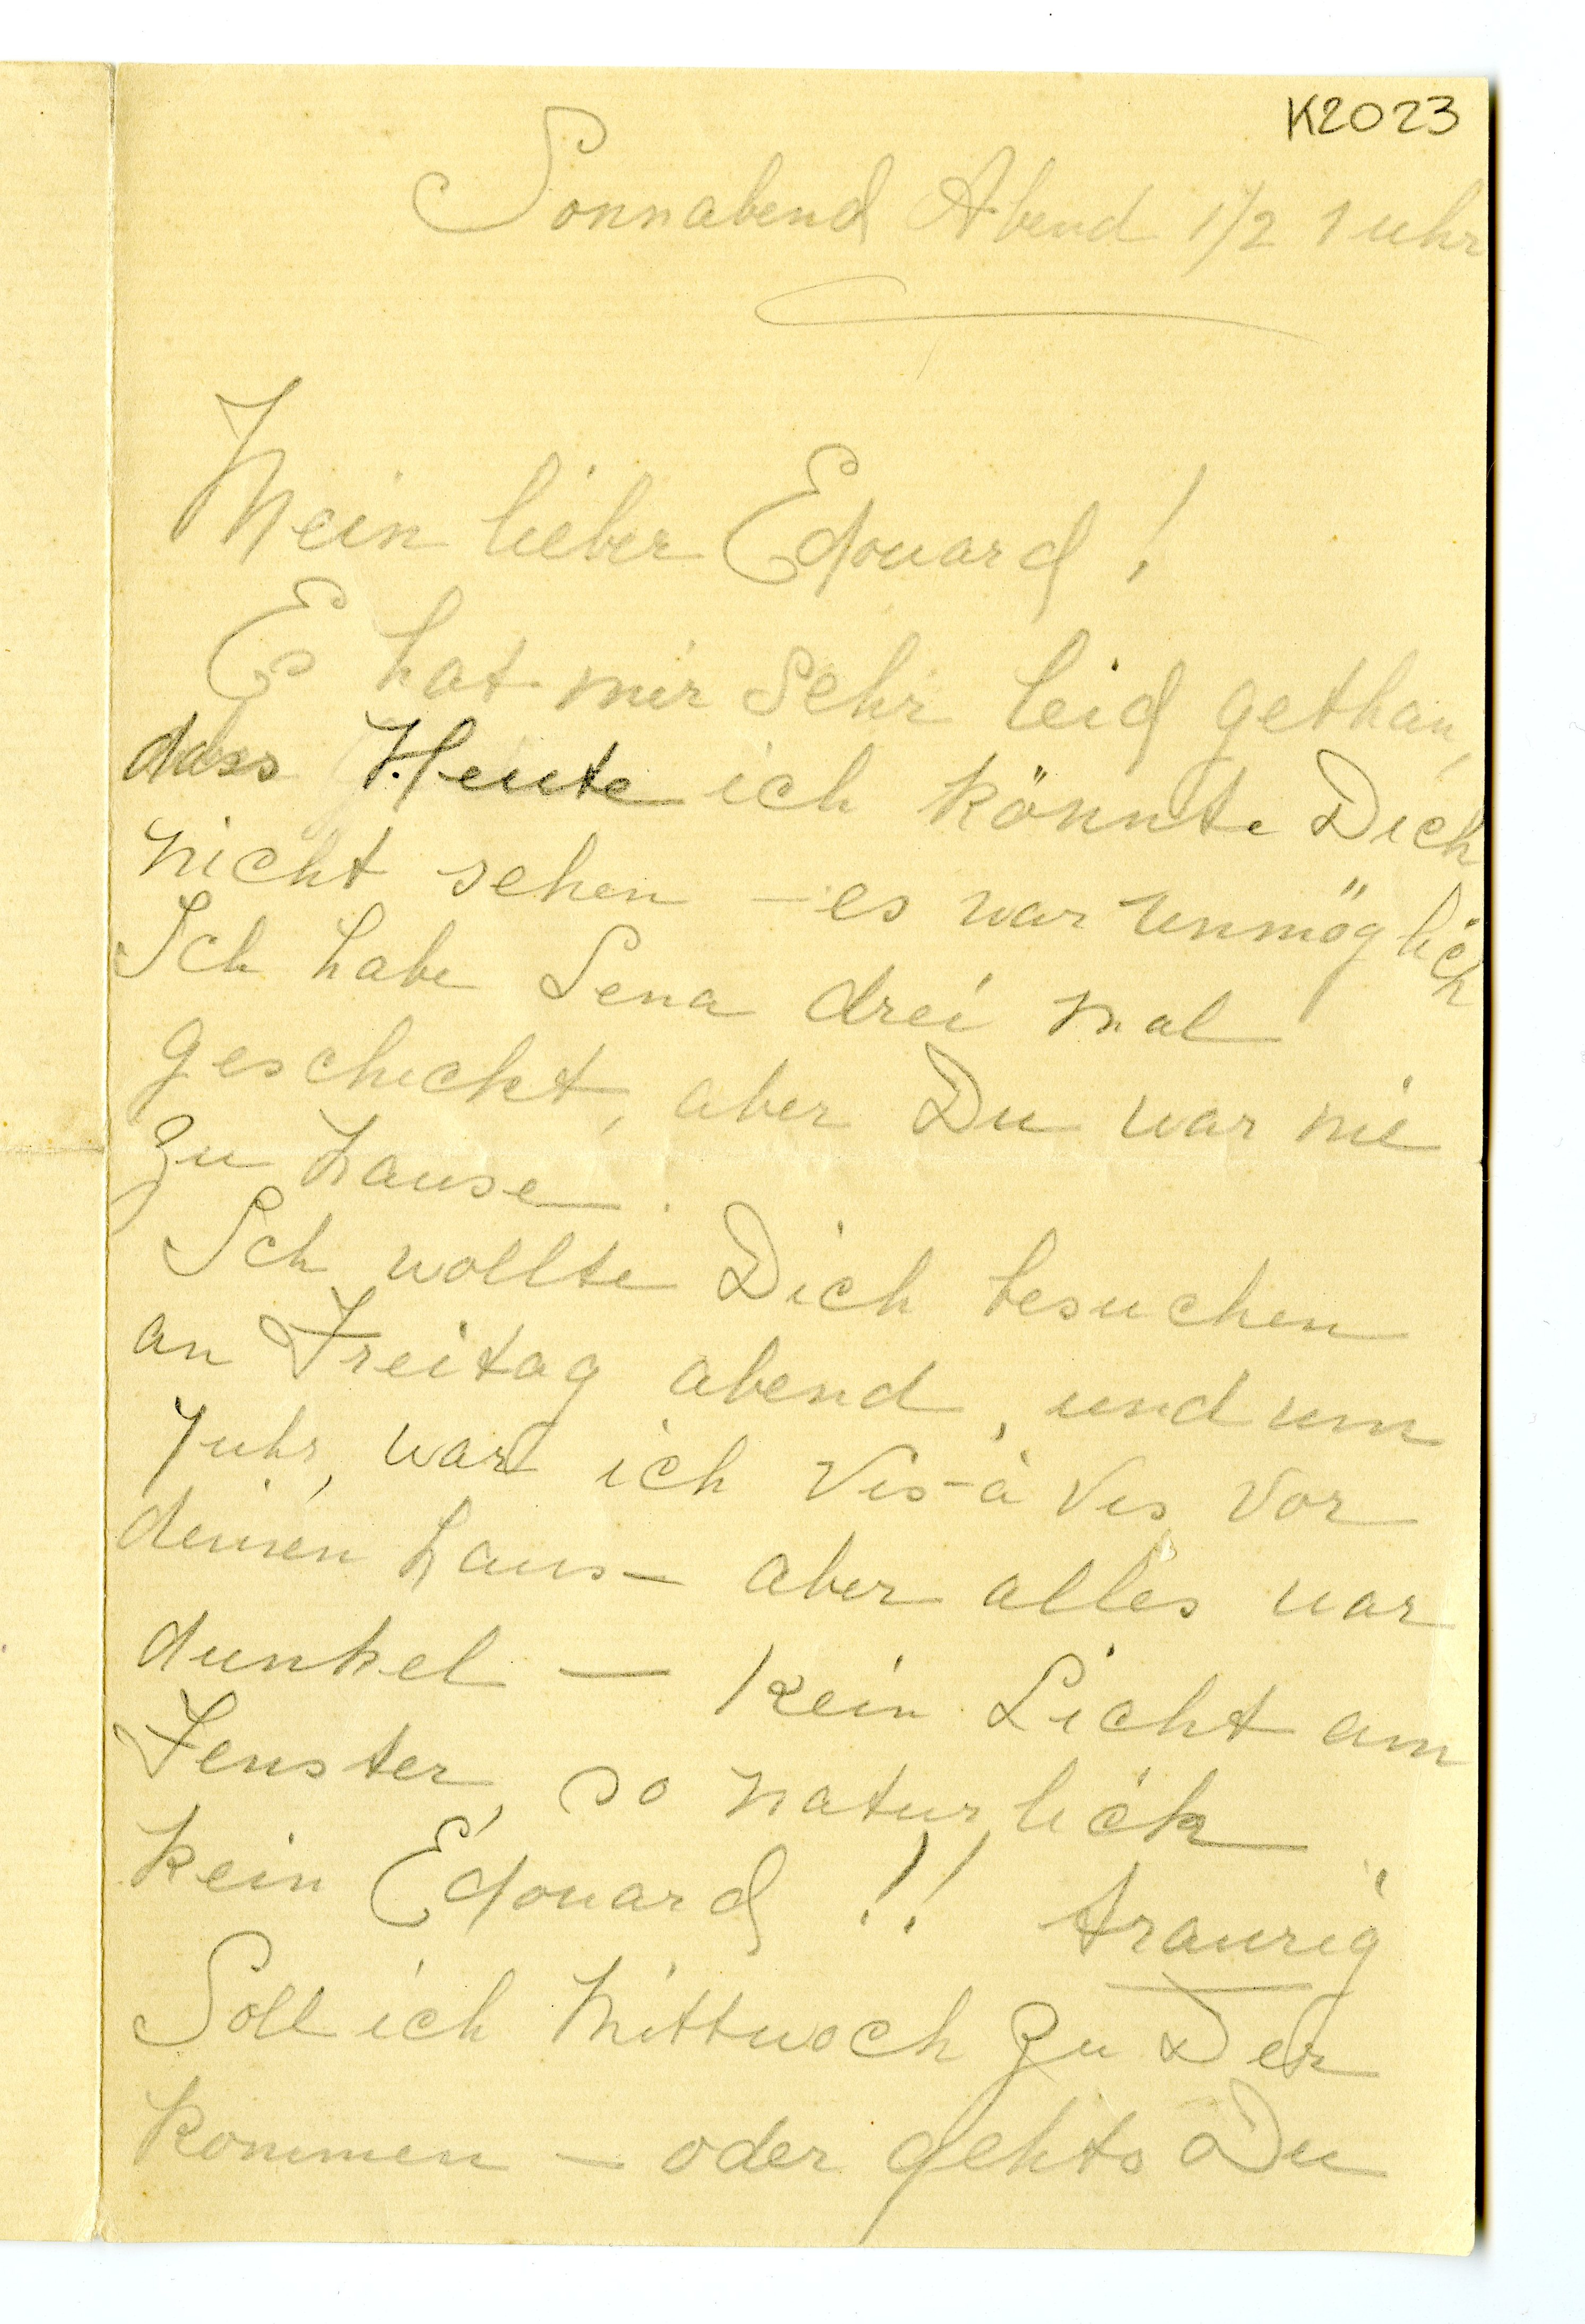 K2023
Sonnabend Abend 1/2 1 uhr
Mein lieber Edouard!
Es hat mir sehr leid gethan,
dass Heute ich könnte Dich
nicht sehen – es war unmöglich
Ich habe Lena drei mal
geschickt, aber Du war nie
zu hause.
Ich wollte Dich besuchen
an Freitag abend, und um
7 uhr, war ich Vis-à Vis vor
deinen haus – aber alles war
dunkel — kein Licht am
Fenster, so naturlich
kein Edouard!! traurig
Soll ich Mittwoch zu Der
kommen – oder gehts Du